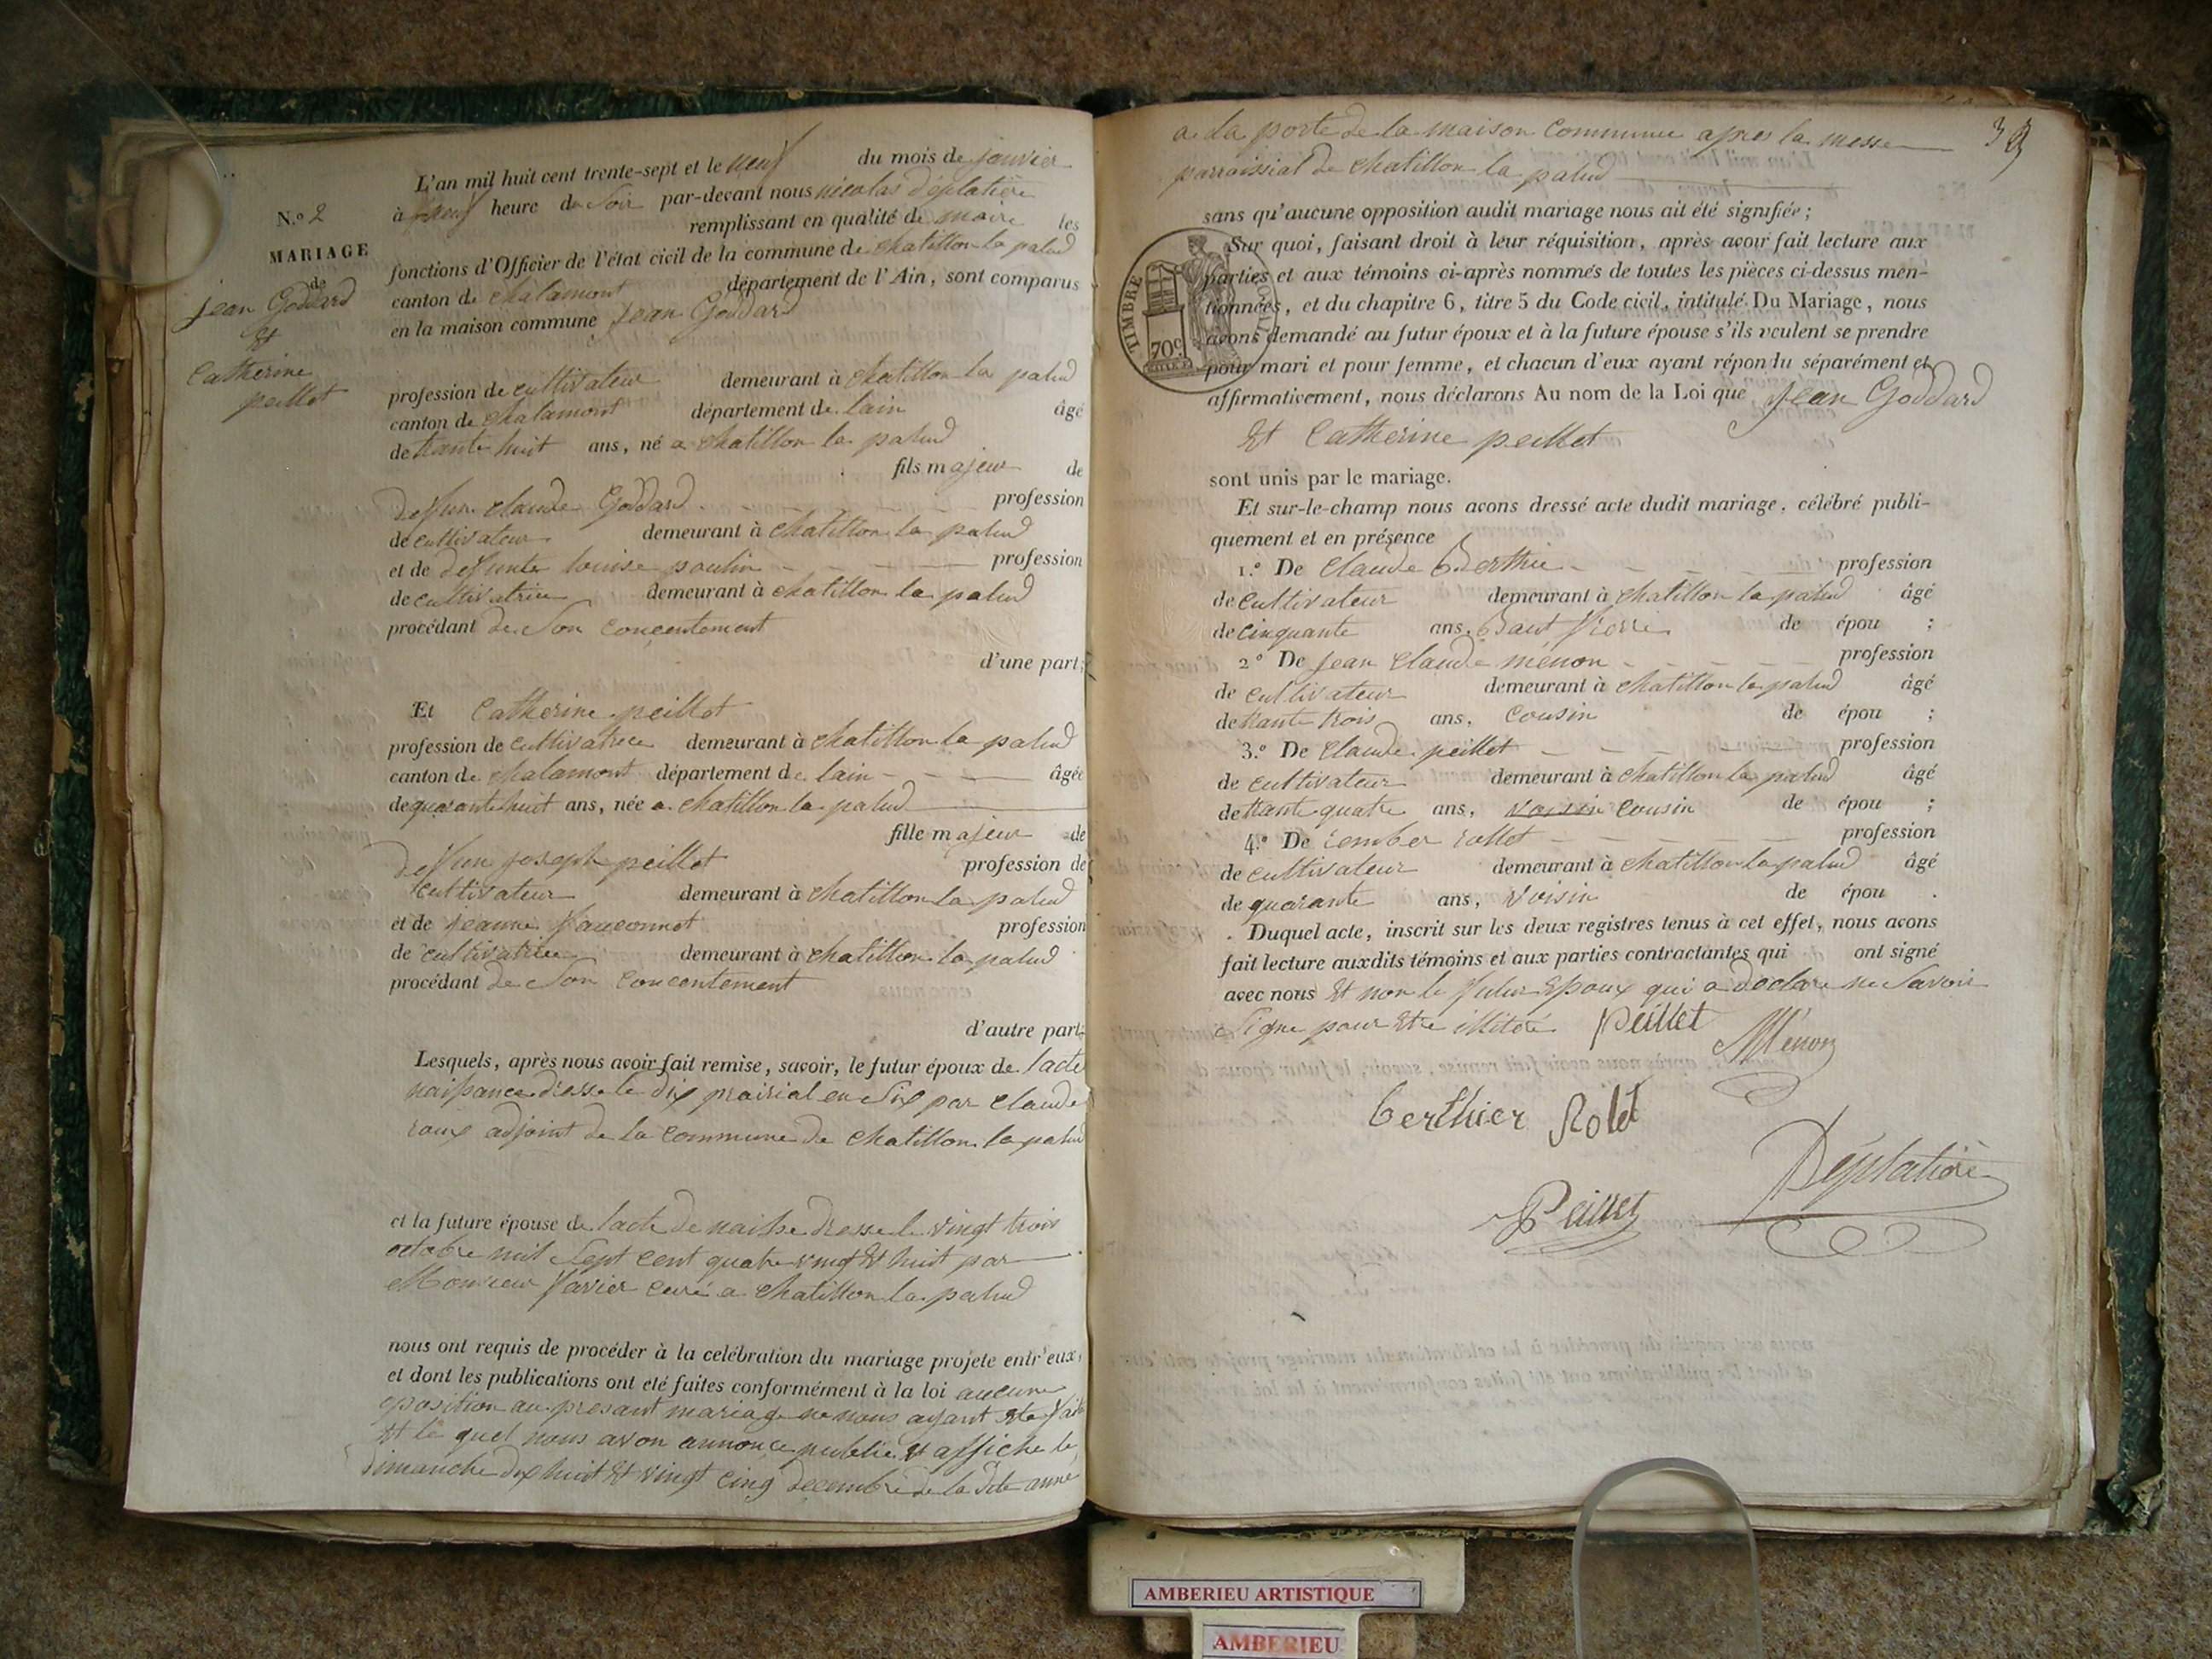 N.º 2
MARIAGE
de
jean Goddard
et
Catherine
peillot
L'an mil huit cent trente-sept et le neuf du mois de janvier
à neuf heure du Soir par-devant nous nicolas déplatière
remplissant en qualité de maire les
fonctions d'Officier de l'état civil de la commune de chatillon la palud
canton de chalamont département de l'Ain, sont comparus
en la maison commune Jean Goddard
profession de cultivateur demeurant à chatillon la palud
canton de chalamont département de lain âgé
de trante huit ans, né a chatillon la palud
fils majeur de
defun claude Goddard profession
de cultivateur demeurant à chatillon la palud
et de defunte louise poulin profession
de cultivatrice demeurant à chatillon la palud
procédant de Son concentement
d'une part;
Et Catherine peillot
profession de cultivatrice demeurant à chatillon la palud
canton de chalamont département de lain âgée
de quarante huit ans, née a chatillon la palud
fille majeur de
defun joseph peillot profession de
cultivateur demeurant à chatillon la palud
et de jeanne fauconnet profession
de cultivatrice demeurant à chatillon la palud
procédant de Son concentement
d'autre part;
Lesquels, après nous avoir fait remise, savoir, le futur époux de lacte
naissance dresse le dix prairial en Six par claude
roux adjoint de la commune de chatillon la palud
et la future épouse de lacte de naisse dresse le vingt trois
octobre mil Sept cent quatre vingt et huit par
Monsieur favier curé a chatillon la palud
nous ont requis de procéder à la celébration du mariage projete entr'eux,
et dont les publications ont eté faites conformément à la loi aucune
oposition au presant mariage ne nous ayant ete fait
et le quel nous avon annonce publié et affiche le
dimanche dix huit et vingt cinq decembre de la dite anné
39
a la porte de la maison commune apres la messe
parroissial de chatillon la palud
sans qu'aucune opposition audit mariage nous ait été signifiée;
Sur quoi, faisant droit à leur réquisition, après avoir fait lecture aux
parties et aux témoins ci-après nommés de toutes les pièces ci-dessus men-
tionnées, et du chapitre 6, titre 5 du Code civil, intitulé Du Mariage, nous
avons demandé au futur époux et à la future épouse s'ils veulent se prendre
pour mari et pour femme, et chacun d'eux ayant répondu séparément et
affirmativement, nous déclarons Au nom de la Loi que Jean Goddard
et Catherine peillot
TIMBRE ROYAL
70c.
sont unis par le mariage.
Et sur-le-champ nous avons dressé acte dudit mariage, célébré publi-
quement et en présence
1.º De Claude Berthie profession
de cultivateur demeurant à chatillon la palud âgé
de cinquante ans, Baut frere de épou ;
2º De jean claude menon profession
de cultivateur demeurant à chatillon la palud âgé
de trante trois ans, cousin de épou ;
3.º De claude peillot profession
de cultivateur demeurant à chatillon la palud âgé
de trante quatre ans, voisin cousin de épou ;
4.º De rember rollet profession
de cultivateur demeurant à chatillon la palud âgé
de quarante ans, voisin de épou .
Duquel acte, inscrit sur les deux registres tenus à cet effet, nous avons
fait lecture auxdits témoins et aux parties contractantes qui ont signé
avec nous et non le futur Epoux qui a declare ne Savoir
Signe pour etre illiteré Peillet
Menon
berthier Rolet
Déplatière
Peillet
AMBERIEU ARTISTIQUE
AMBERIEU